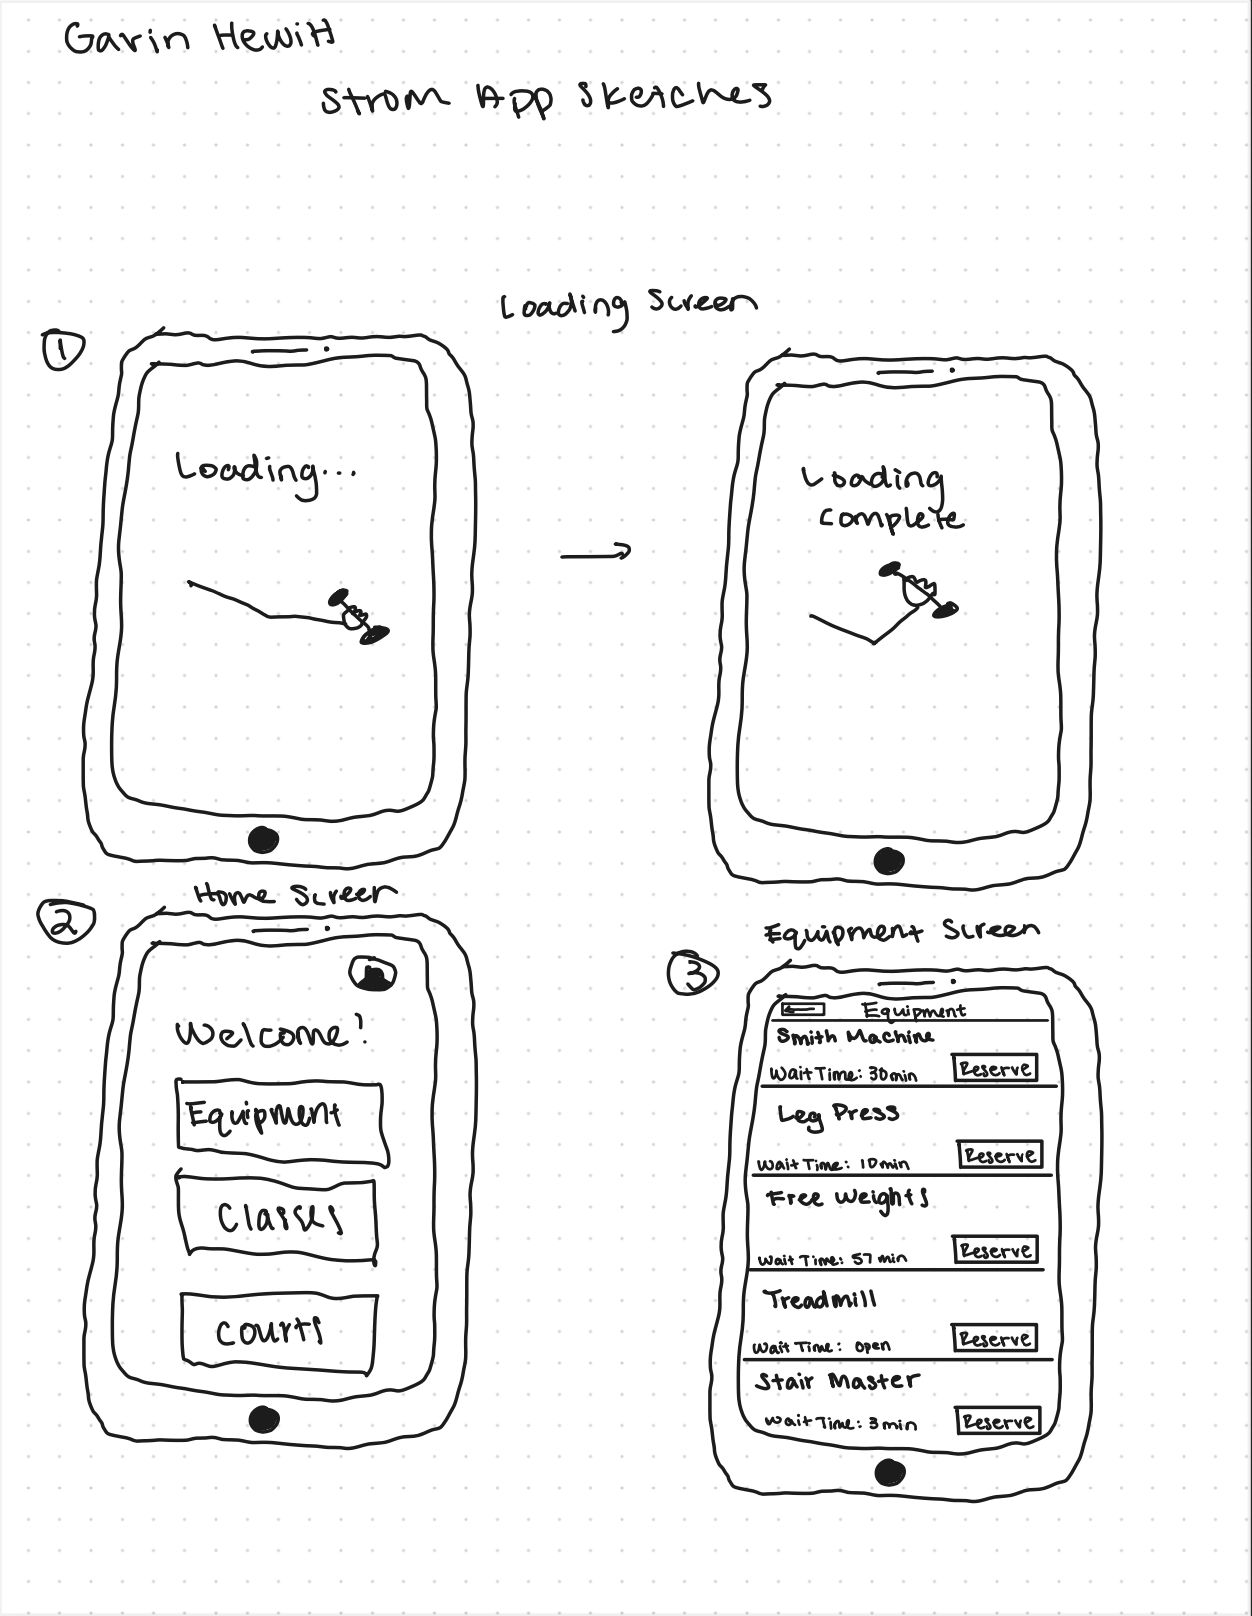 Garin Hewitt
Strom App Sketches
Loading Screen
1
Loading...
Loading
Complete
Home Screen
2
Welcome!
Equipment
Classes
Courts
Equipment Screen
3
Equipment
Smith Machine
Wait Time: 30min
Reserve
Leg Press
Wait Time: 10min
Reserve
Free Weights
Wait Time: 57 min
Reserve
Treadmill
Wait Time: Open
Reserve
Stair Master
Wait Time: 3 min
Reserve